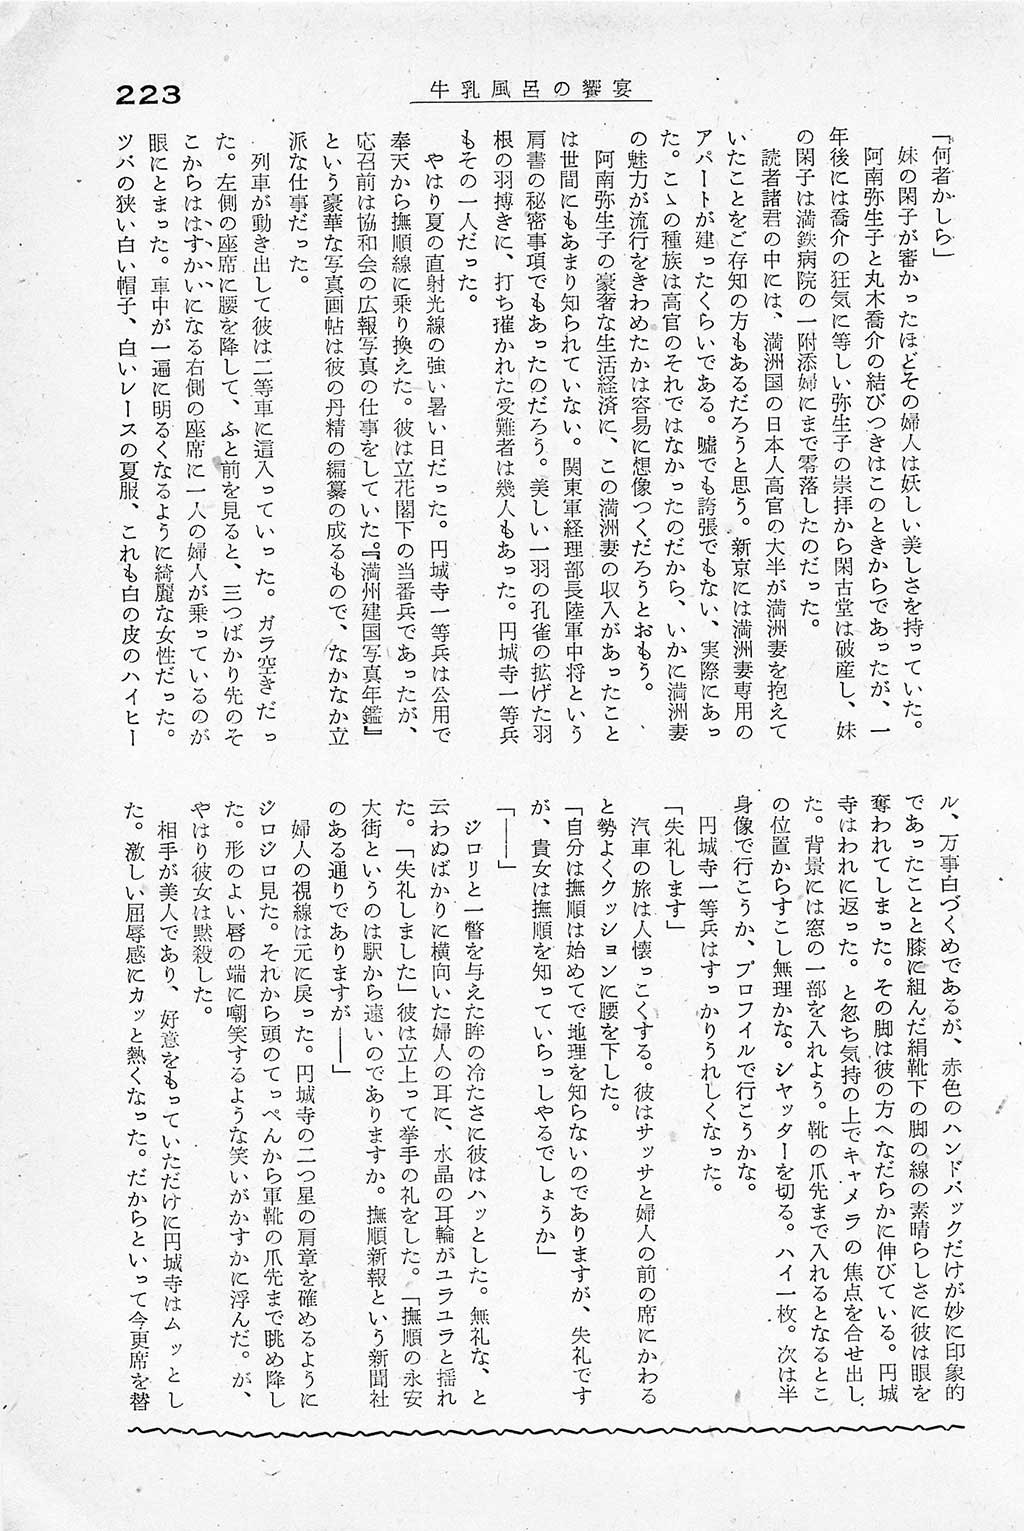 223
牛乳風呂の饗宴
「何者かしら」
　妹の閑子が審かったほどその婦人は妖しい美しさを持っていた。
　阿南弥生子と丸木喬介の結びつきはこのときからであったが、一
年後には喬介の狂気に等しい弥生子の崇拝から閑古堂は破産し、妹
の閑子は満鉄病院の一附添婦にまで零落したのだった。
　読者諸君の中には、満洲国の日本人高官の大半が満洲妻を抱えて
いたことをご存知の方もあるだろうと思う。新京には満洲妻専用の
アパートが建ったくらいである。嘘でも誇張でもない、実際にあっ
た。こゝの種族は高官のそれではなかったのだから、いかに満洲妻
の魅力が流行をきわめたかは容易に想像つくだろうとおもう。
　阿南弥生子の豪奢な生活経済に、この満洲妻の収入があったこと
は世間にもあまり知られていない。関東軍経理部長陸軍中将という
肩書の秘密事項でもあったのだろう。美しい一羽の孔雀の拡げた羽
根の羽搏きに、打ち摧かれた受難者は幾人もあった。円城寺一等兵
もその一人だった。
　やはり夏の直射光線の強い暑い日だった。円城寺一等兵は公用で
奉天から撫順線に乗り換えた。彼は立花閣下の当番兵であったが、
応召前は協和会の広報写真の仕事をしていた。『満州建国写真年鑑』
という豪華な写真画帖は彼の丹精の編纂の成るもので、なかなか立
派な仕事だった。
　列車が動き出して彼は二等車に這入っていった。ガラ空きだっ
た。左側の座席に腰を降して、ふと前を見ると、三つばかり先のそ
こからははすかいになる右側の座席に一人の婦人が乗っているのが
眼にとまった。車中が一遍に明るくなるように綺麗な女性だった。
ツバの狭い白い帽子、白いレースの夏服、これも白の皮のハイヒー
ル、万事白づくめであるが、赤色のハンドバックだけが妙に印象的
であったことと膝に組んだ絹靴下の脚の線の素晴らしさに彼は眼を
奪われてしまった。その脚は彼の方へなだらかに伸びている。円城
寺はわれに返った。と忽ち気持の上でキャメラの焦点を合せ出し
た。背景には窓の一部を入れよう。靴の爪先まで入れるとなるとこ
の位置からすこし無理かな。シャッターを切る。ハイ一枚。次は半
身像で行こうか、プロフイルで行こうかな。
　円城寺一等兵はすっかりうれしくなった。
「失礼します」
　汽車の旅は人懐っこくする。彼はサッサと婦人の前の席にかわる
と勢よくクッションに腰を下した。
「自分は撫順は始めてで地理を知らないのでありますが、失礼です
が、貴女は撫順を知っていらっしやるでしょうか」
「――」
　ジロリと一瞥を与えた眸の冷たさに彼はハッとした。無礼な、と
云わぬばかりに横向いた婦人の耳に、水晶の耳輪がユラユラと揺れ
た。「失礼しました」彼は立上って挙手の礼をした。「撫順の永安
大街というのは駅から遠いのでありますか。撫順新報という新聞社
のある通りでありますが――」
　婦人の視線は元に戻った。円城寺の二つ星の肩章を確めるように
ジロジロ見た。それから頭のてっぺんから軍靴の爪先まで眺め降し
た。形のよい唇の端に嘲笑するような笑いがかすかに浮んだ。が、
やはり彼女は黙殺した。
　相手が美人であり、好意をもっていただけに円城寺はムッとし
た。激しい屈辱感にカッと熱くなった。だからといって今更席を替